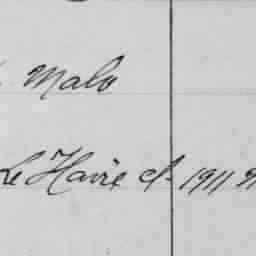 Malo
Le Havre cl. 1911